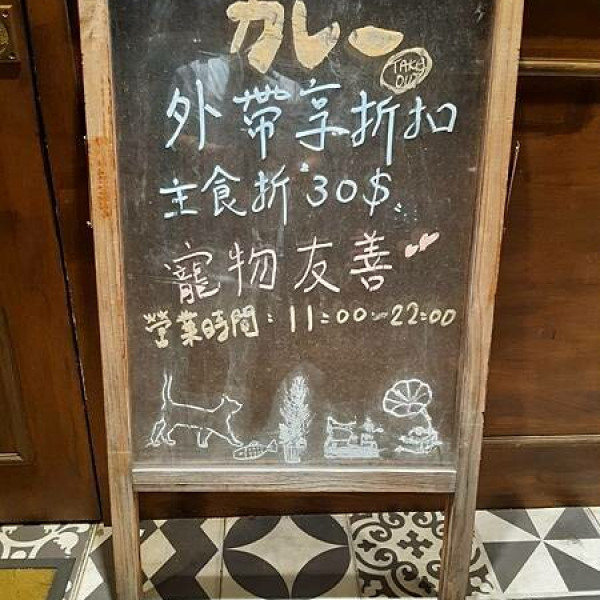 カレー
TAKE
OUT
外帶享折扣
主食折"30$"
寵物友善
營業時間:11:00-22:00